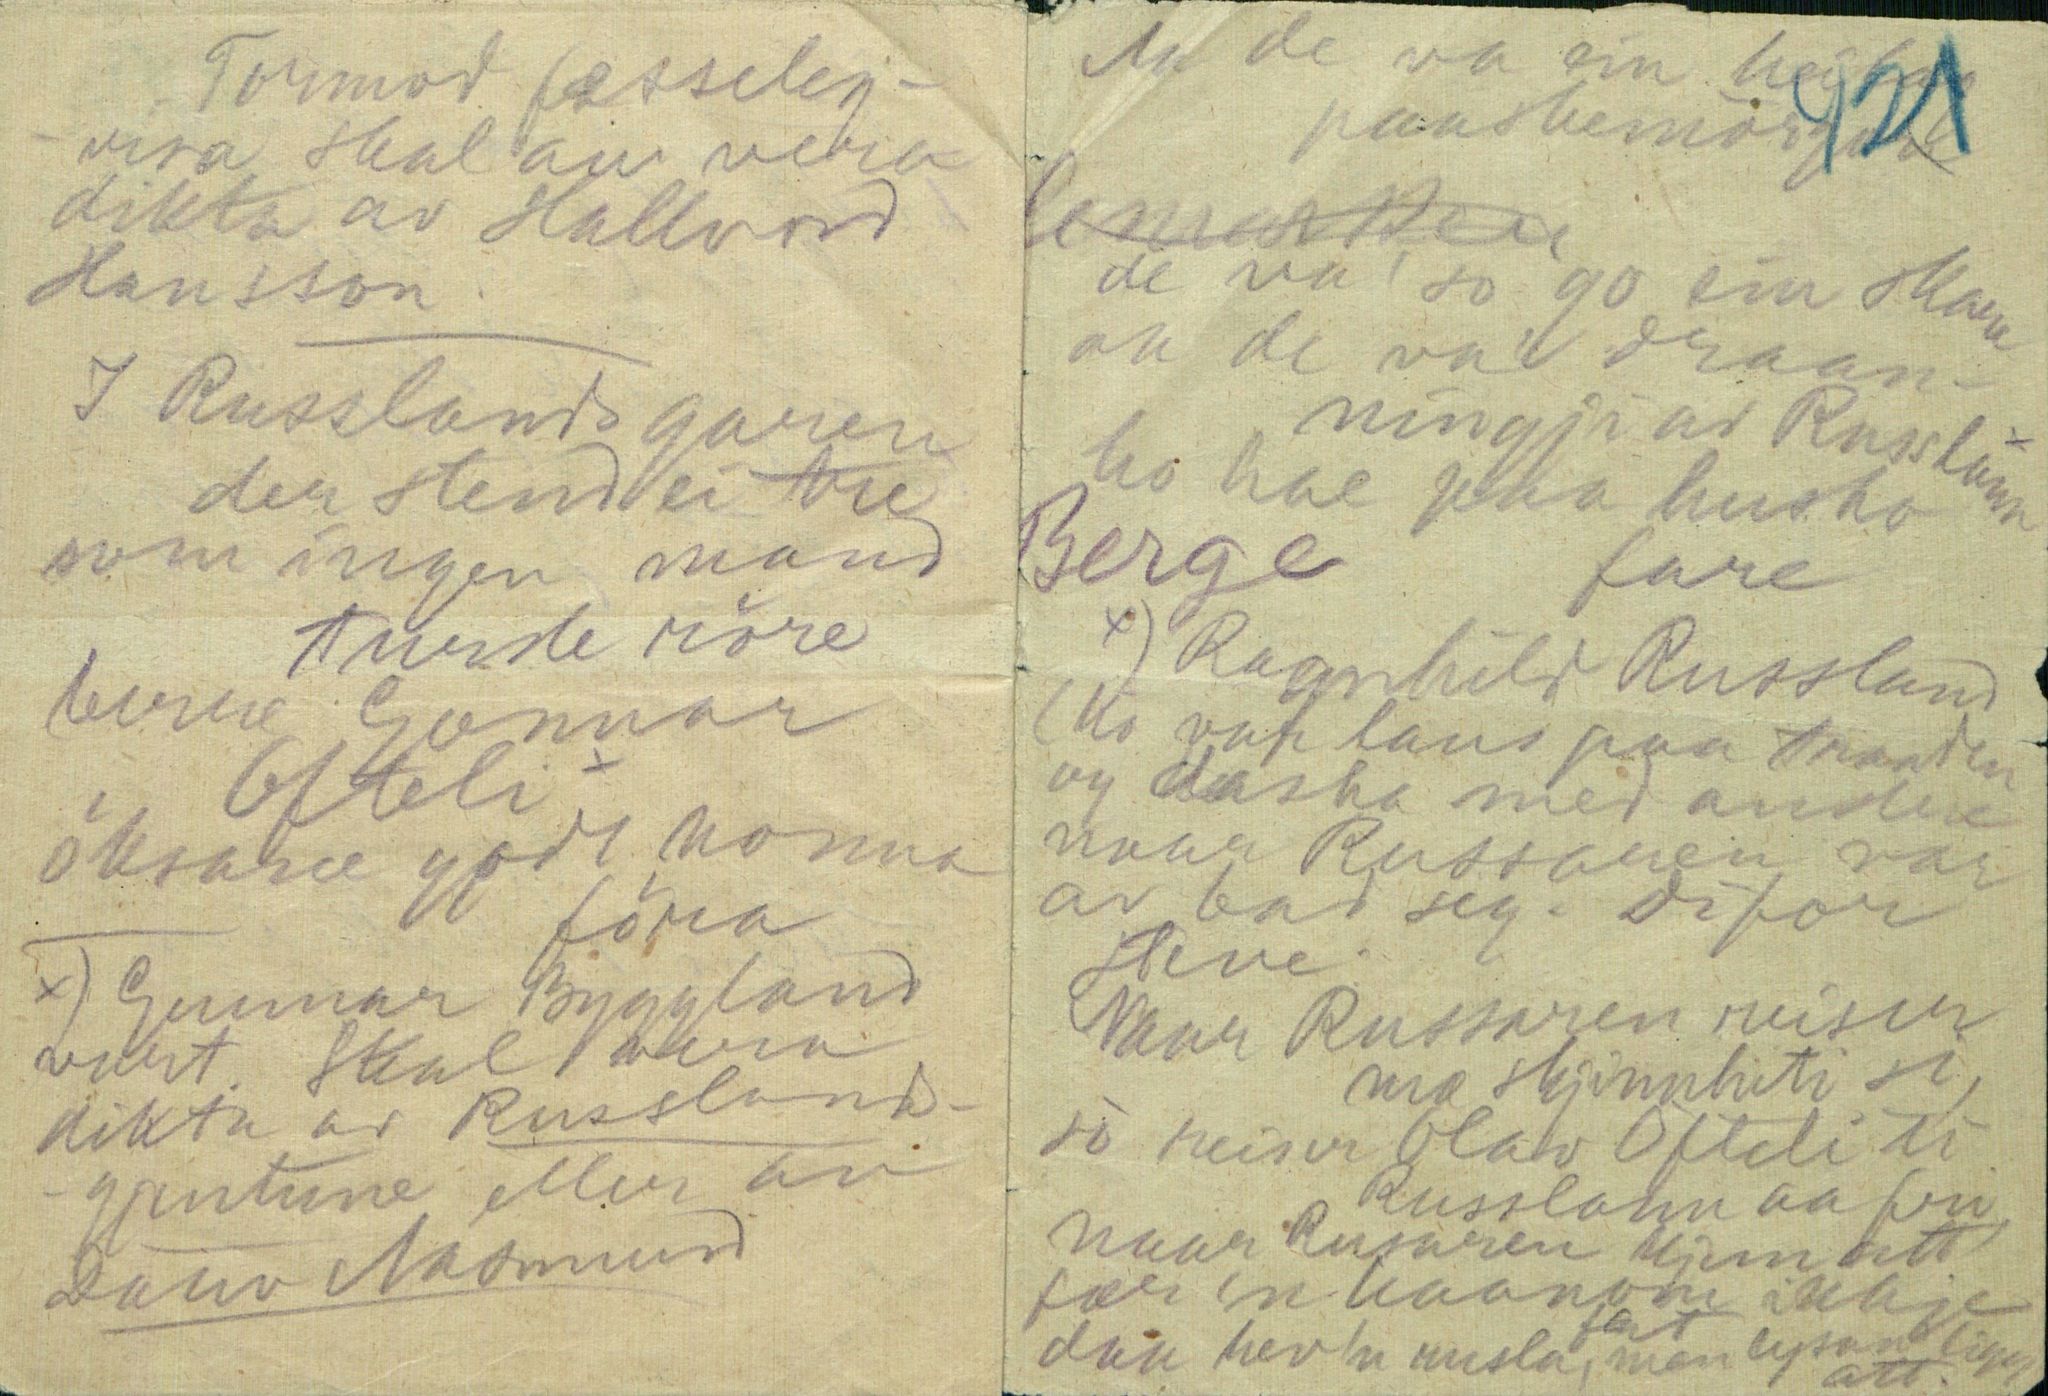 Tormod fesseleg-
- visa skal au vera
dikta av Hallvord
Hansson.
I Russlandsgaren
der stend ei tre
som ingen mand
turde röre
berre Gonnar
Ofteli x
öksare godt konna
föra
x) Gunnar Byggland
vert. Skal vera
dikta av Russland-
- gjentune eller av
Dauv Aasmund
Aa de va ein
paaskemorgo
de va' so go ein skare
aa de va'
ningji av Russlann x
ho hae paa husko
fare
Berge
x) Ragnhild Russland
(ho var laus paa traaden
og daska med andre
naar Russaren var
av bad seg. Difor
steve.
Naar Russaren reiser
mæ skjinnhiti si,
so reiser Olav Ofteli ti
Russlann aa fri,
naar Rusaren kjem att
fær 'n haanom ikkje
fat
daa hev'n rusla, men lysan ligg
att.
921